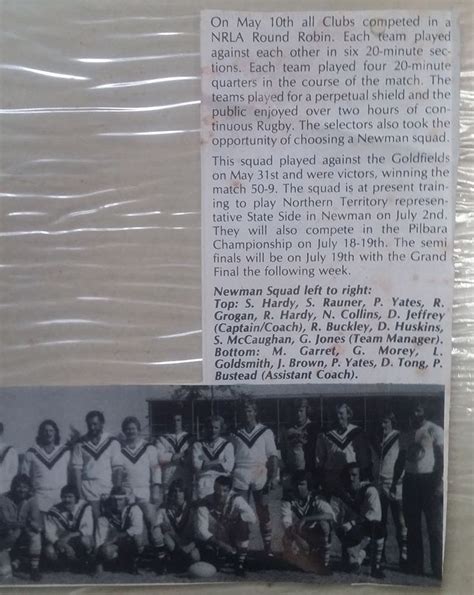 On May 10th all Clubs competed in a
NRLA Round Robin. Each team played
against each other in six 20-minute sec-
tions. Each team played four 20-minute
quarters in the course of the match. The
teams played for a perpetual shield and the
public enjoyed over two hours of con-
tinuous Rugby. The selectors also took the
opportunity of choosing a Newman squad.
This squad played against the Goldfields
on May 31st and were victors, winning the
match 50-9. The squad is at present train-
ing to play Northern Territory represen-
tative State Side in Newman on July 2nd.
They will also compete in the Pilbara
Championship on July 18-19th. The semi
finals will be on July 19th with the Grand
Final the following week.
Newman Squad left to right:
Top: S. Hardy, S. Rauner, P. Yates, R.
Grogan, R. Hardy, N. Collins, D. Jeffrey
(Captain/Coach), R. Buckley, D. Huskins,
S. McCaughan, G. Jones (Team Manager).
Bottom: M. Garret, G. Morey, L.
Goldsmith, J. Brown, P. Yates, D. Tong, P.
Bustead (Assistant Coach).